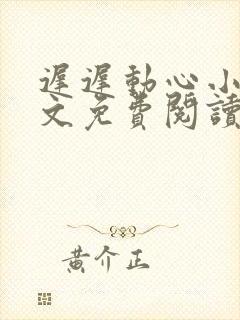 遲遲動心小
文免費閱讀
黃介正